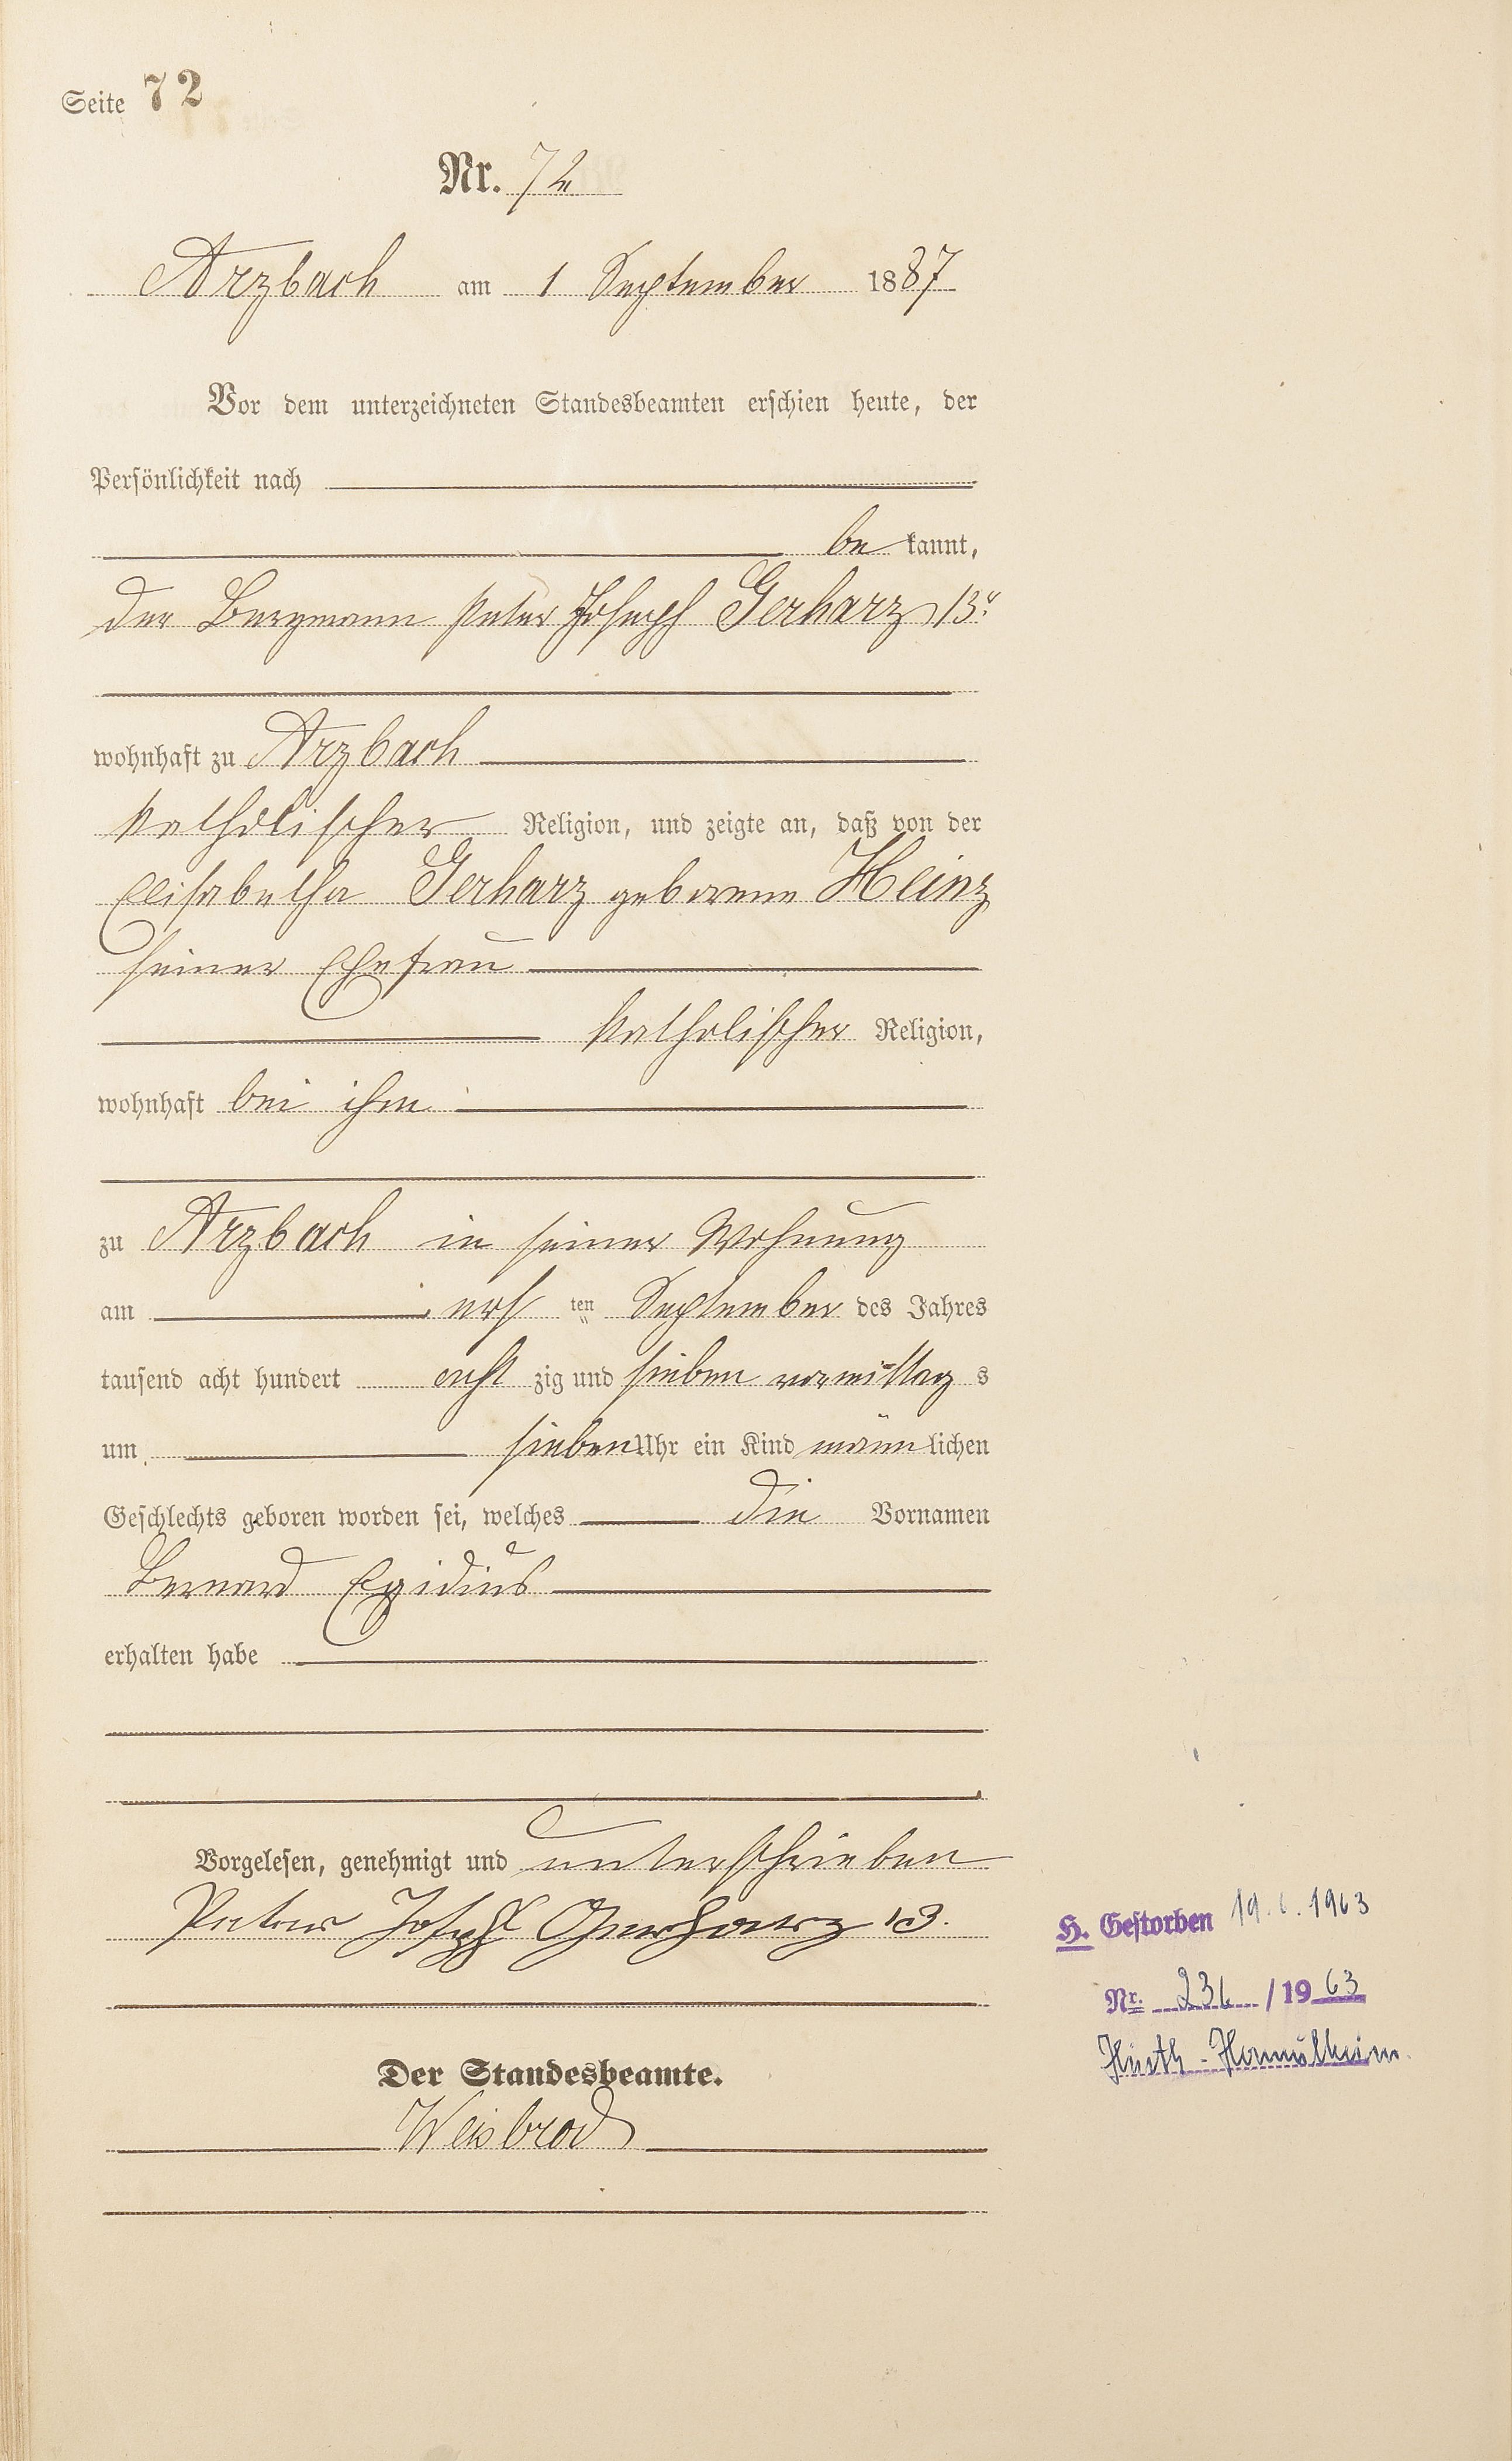 Seite 72
Nr. 72
Arzbach am 1 September 1887
Vor dem unterzeichneten Standesbeamten erschien heute, der
Persönlichkeit nach
be kannt,
der Bergmann Peter Joseph Gerharz 13r
wohnhaft zu Arzbach
katholischer Religion, und zeigte an, daß von der
Elisabetha Gerharz geborene Heinz
seiner Ehefrau
katholischer Religion,
wohnhaft bei ihm
zu Arzbach in seiner Wohnung
am ers ten September des Jahres
tausend acht hundert acht zig und sieben vormittag s
um sieben Uhr ein Kind männ lichen
Geschlechts geboren worden sei, welches die Vornamen
Bernard Egidius
erhalten habe
Vorgelesen, genehmigt und unterschrieben
Peter Joseph Gerharz 13.
H. Gestorben 19.6.1963
Nr. 236 /1963
Hürth-Hermülheim
Der Standesbeamte.
Weisbrod